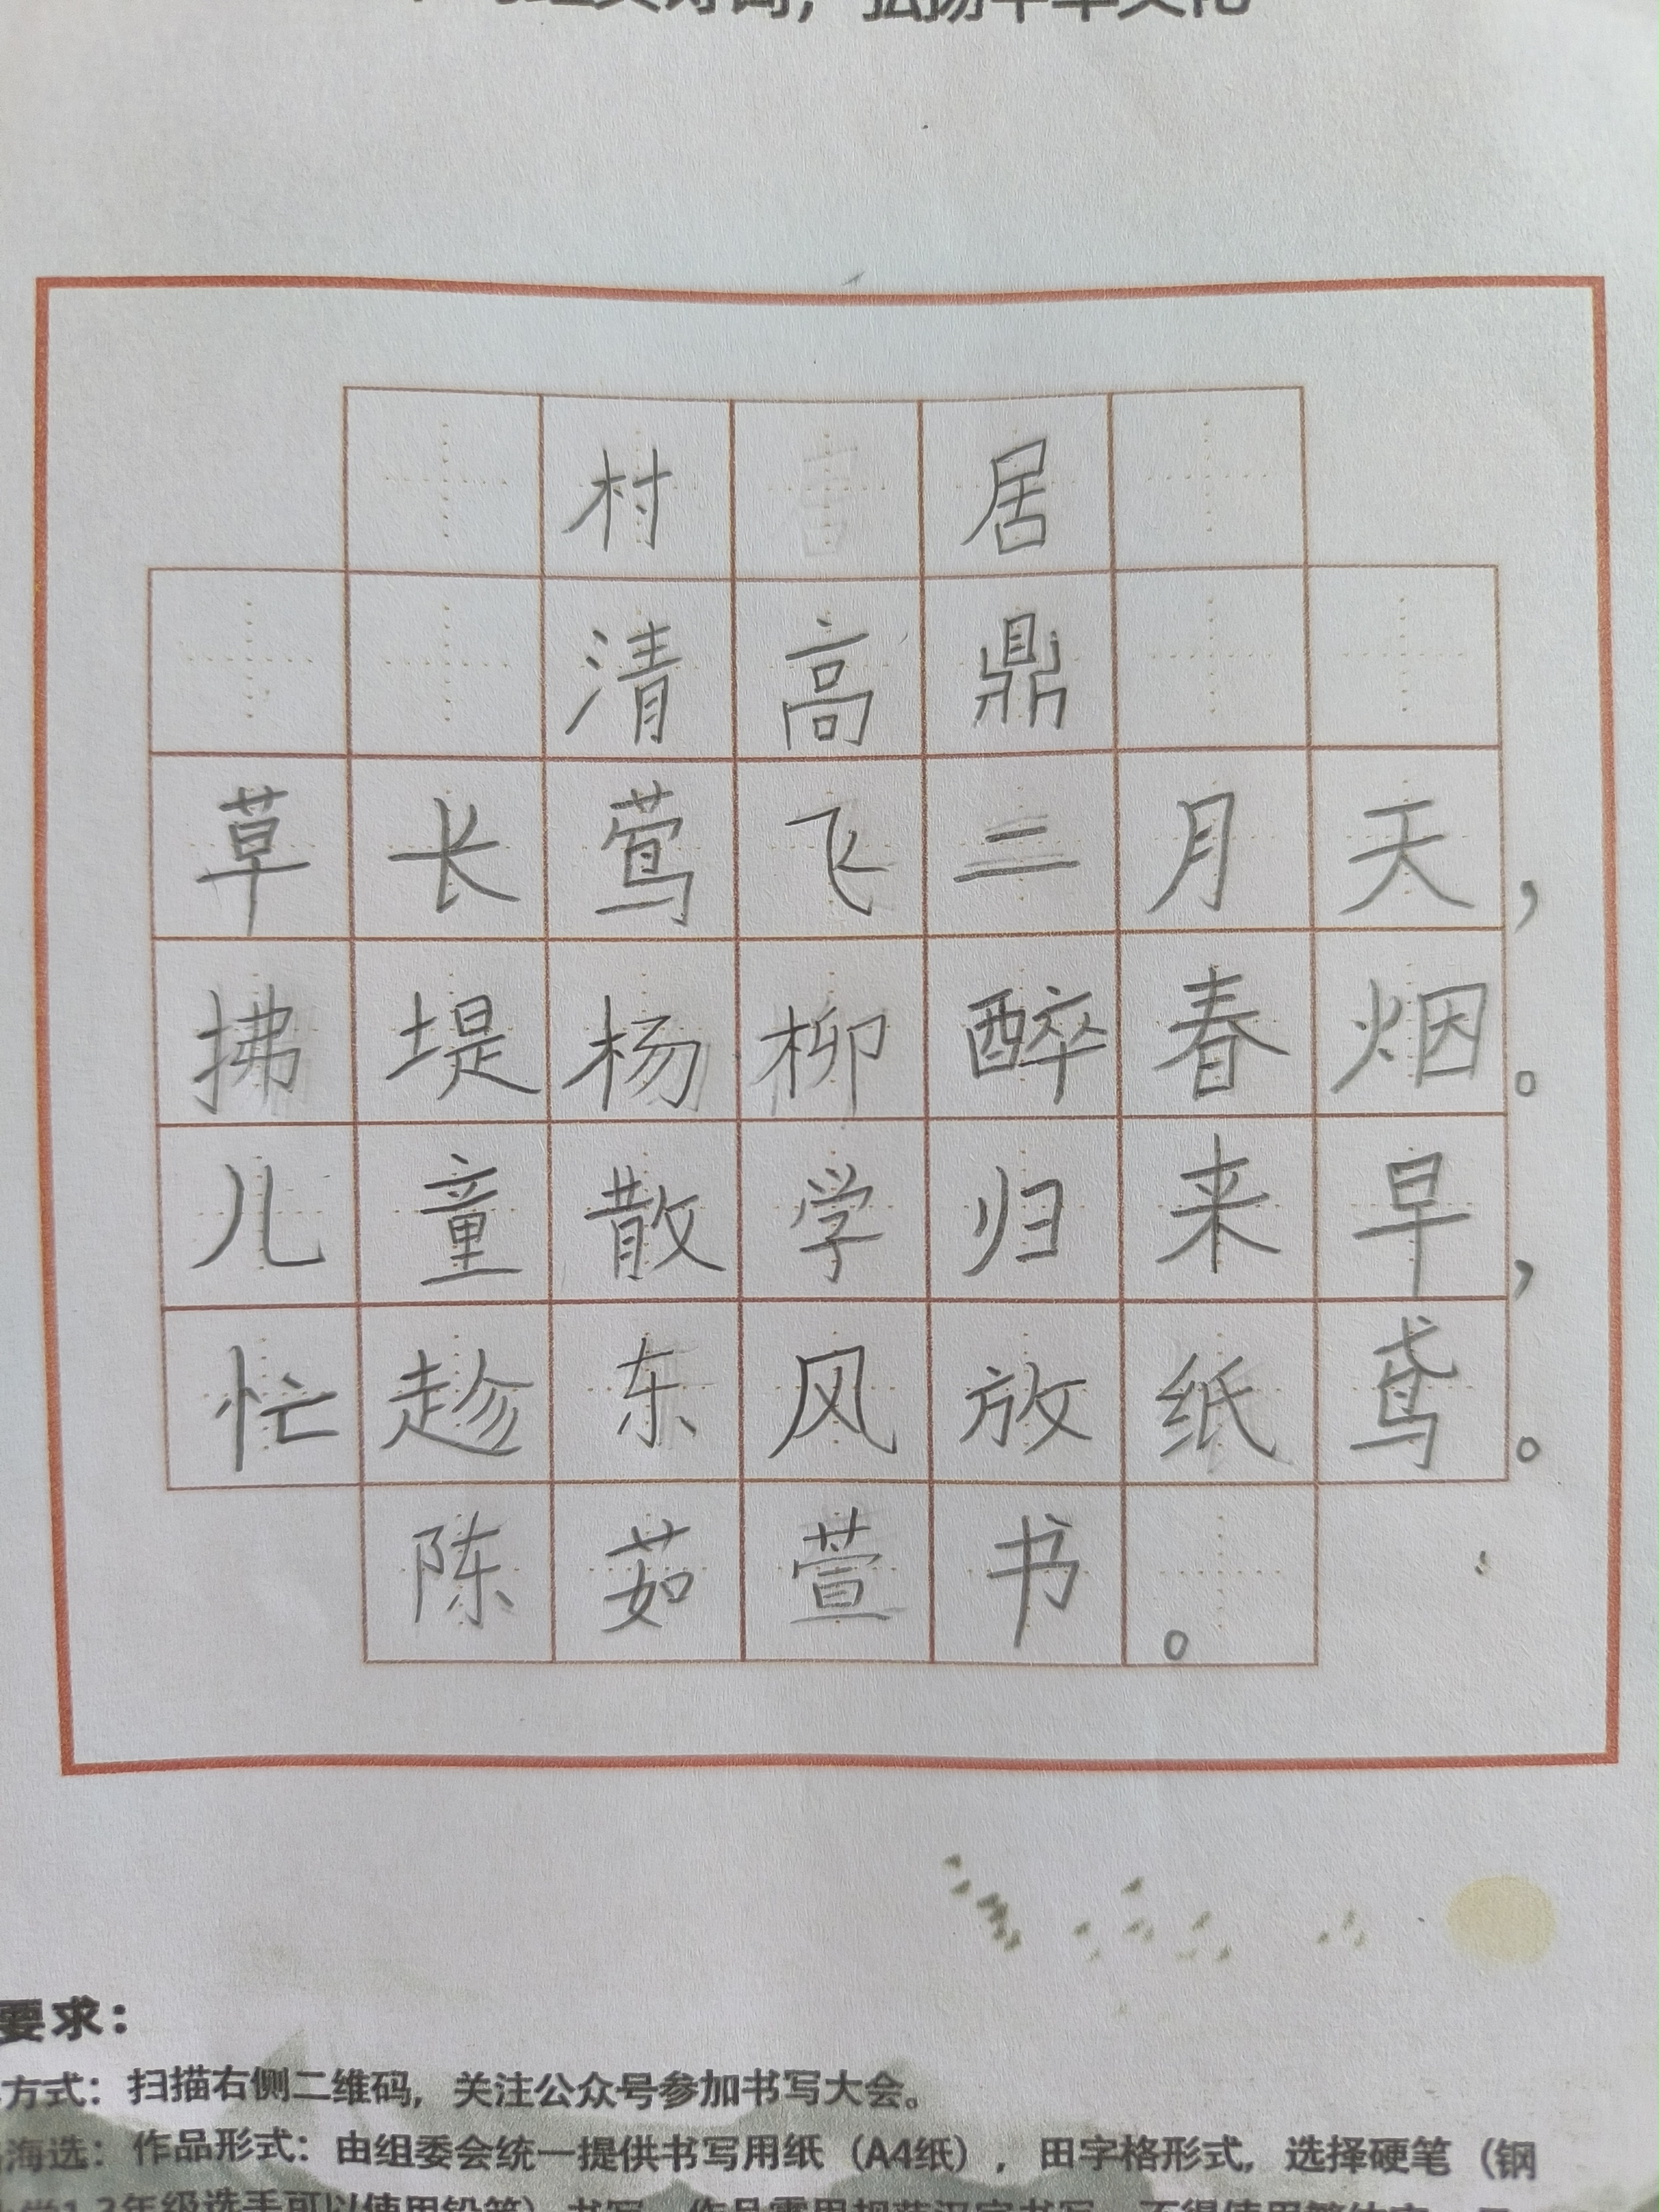 弘扬中华文化
村居
清高鼎
草长莺飞二月天，
拂堤杨柳醉春烟。
儿童散学归来早，
忙趁东风放纸鸢。
陈茹萱书。
要求：
方式：扫描右侧二维码，关注公众号参加书写大会。
海选：作品形式：由组委会统一提供书写用纸（A4纸），田字格形式，选择硬笔（钢
年级选手可以使用铅笔）书写